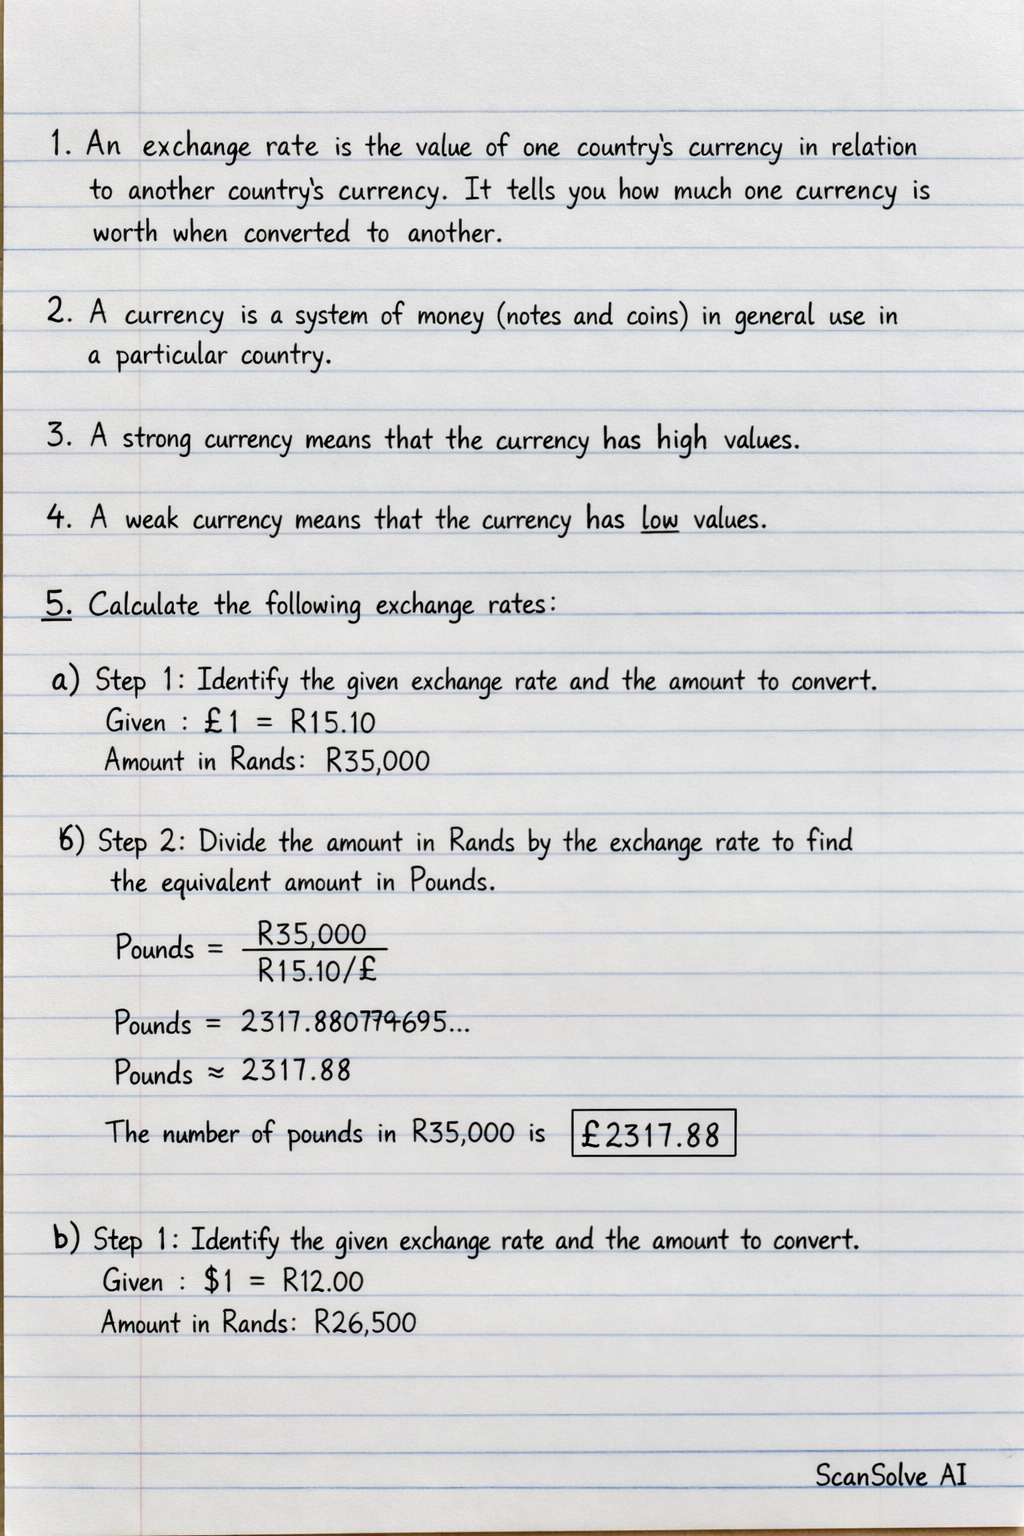 1. An exchange rate is the value of one country's currency in relation
to another country's currency. It tells you how much one currency is
worth when converted to another.
2. A currency is a system of money (notes and coins) in general use in
a particular country.
3. A strong currency means that the currency has high values.
4. A weak currency means that the currency has low values.
5. Calculate the following exchange rates:
a) Step 1: Identify the given exchange rate and the amount to convert.
Given : £1 = R15.10
Amount in Rands: R35,000
6) Step 2: Divide the amount in Rands by the exchange rate to find
the equivalent amount in Pounds.
Pounds = R35,000
R15.10/£
Pounds = 2317.880779695...
Pounds ≈ 2317.88
The number of pounds in R35,000 is £2317.88
b) Step 1: Identify the given exchange rate and the amount to convert.
Given : $1 = R12.00
Amount in Rands: R26,500
ScanSolve AI